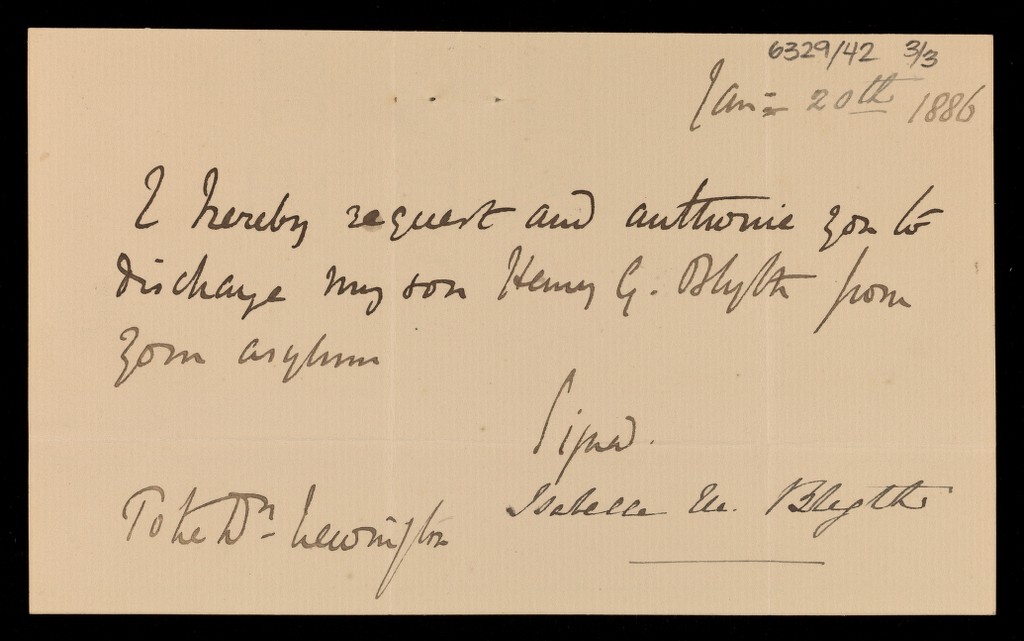 6329/42 3/3
Jan= 20th 1886
I hereby request and authorise you to
discharge my son Henry G. Blyth from
your asylum
Signed.
Isabella M. Blyth
To the Drs Newington